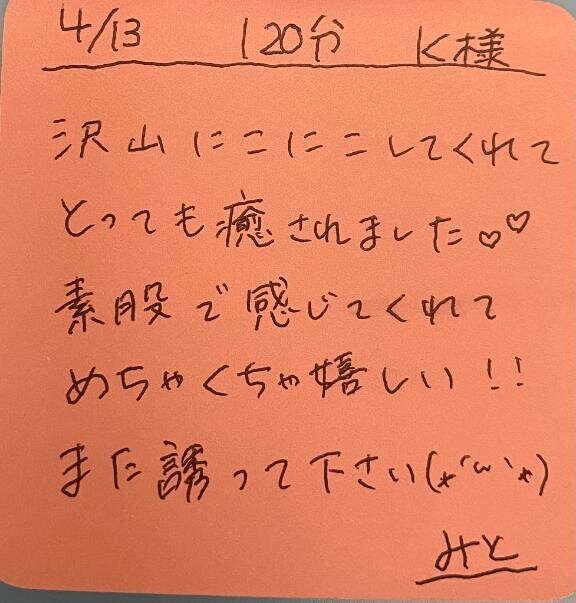 4/13 120分 K様
沢山にこにこしてくれて
とっても癒されました♡♡
素股で感じてくれて
めちゃくちゃ嬉しい!!
また誘って下さい(*´ω`*)
みと